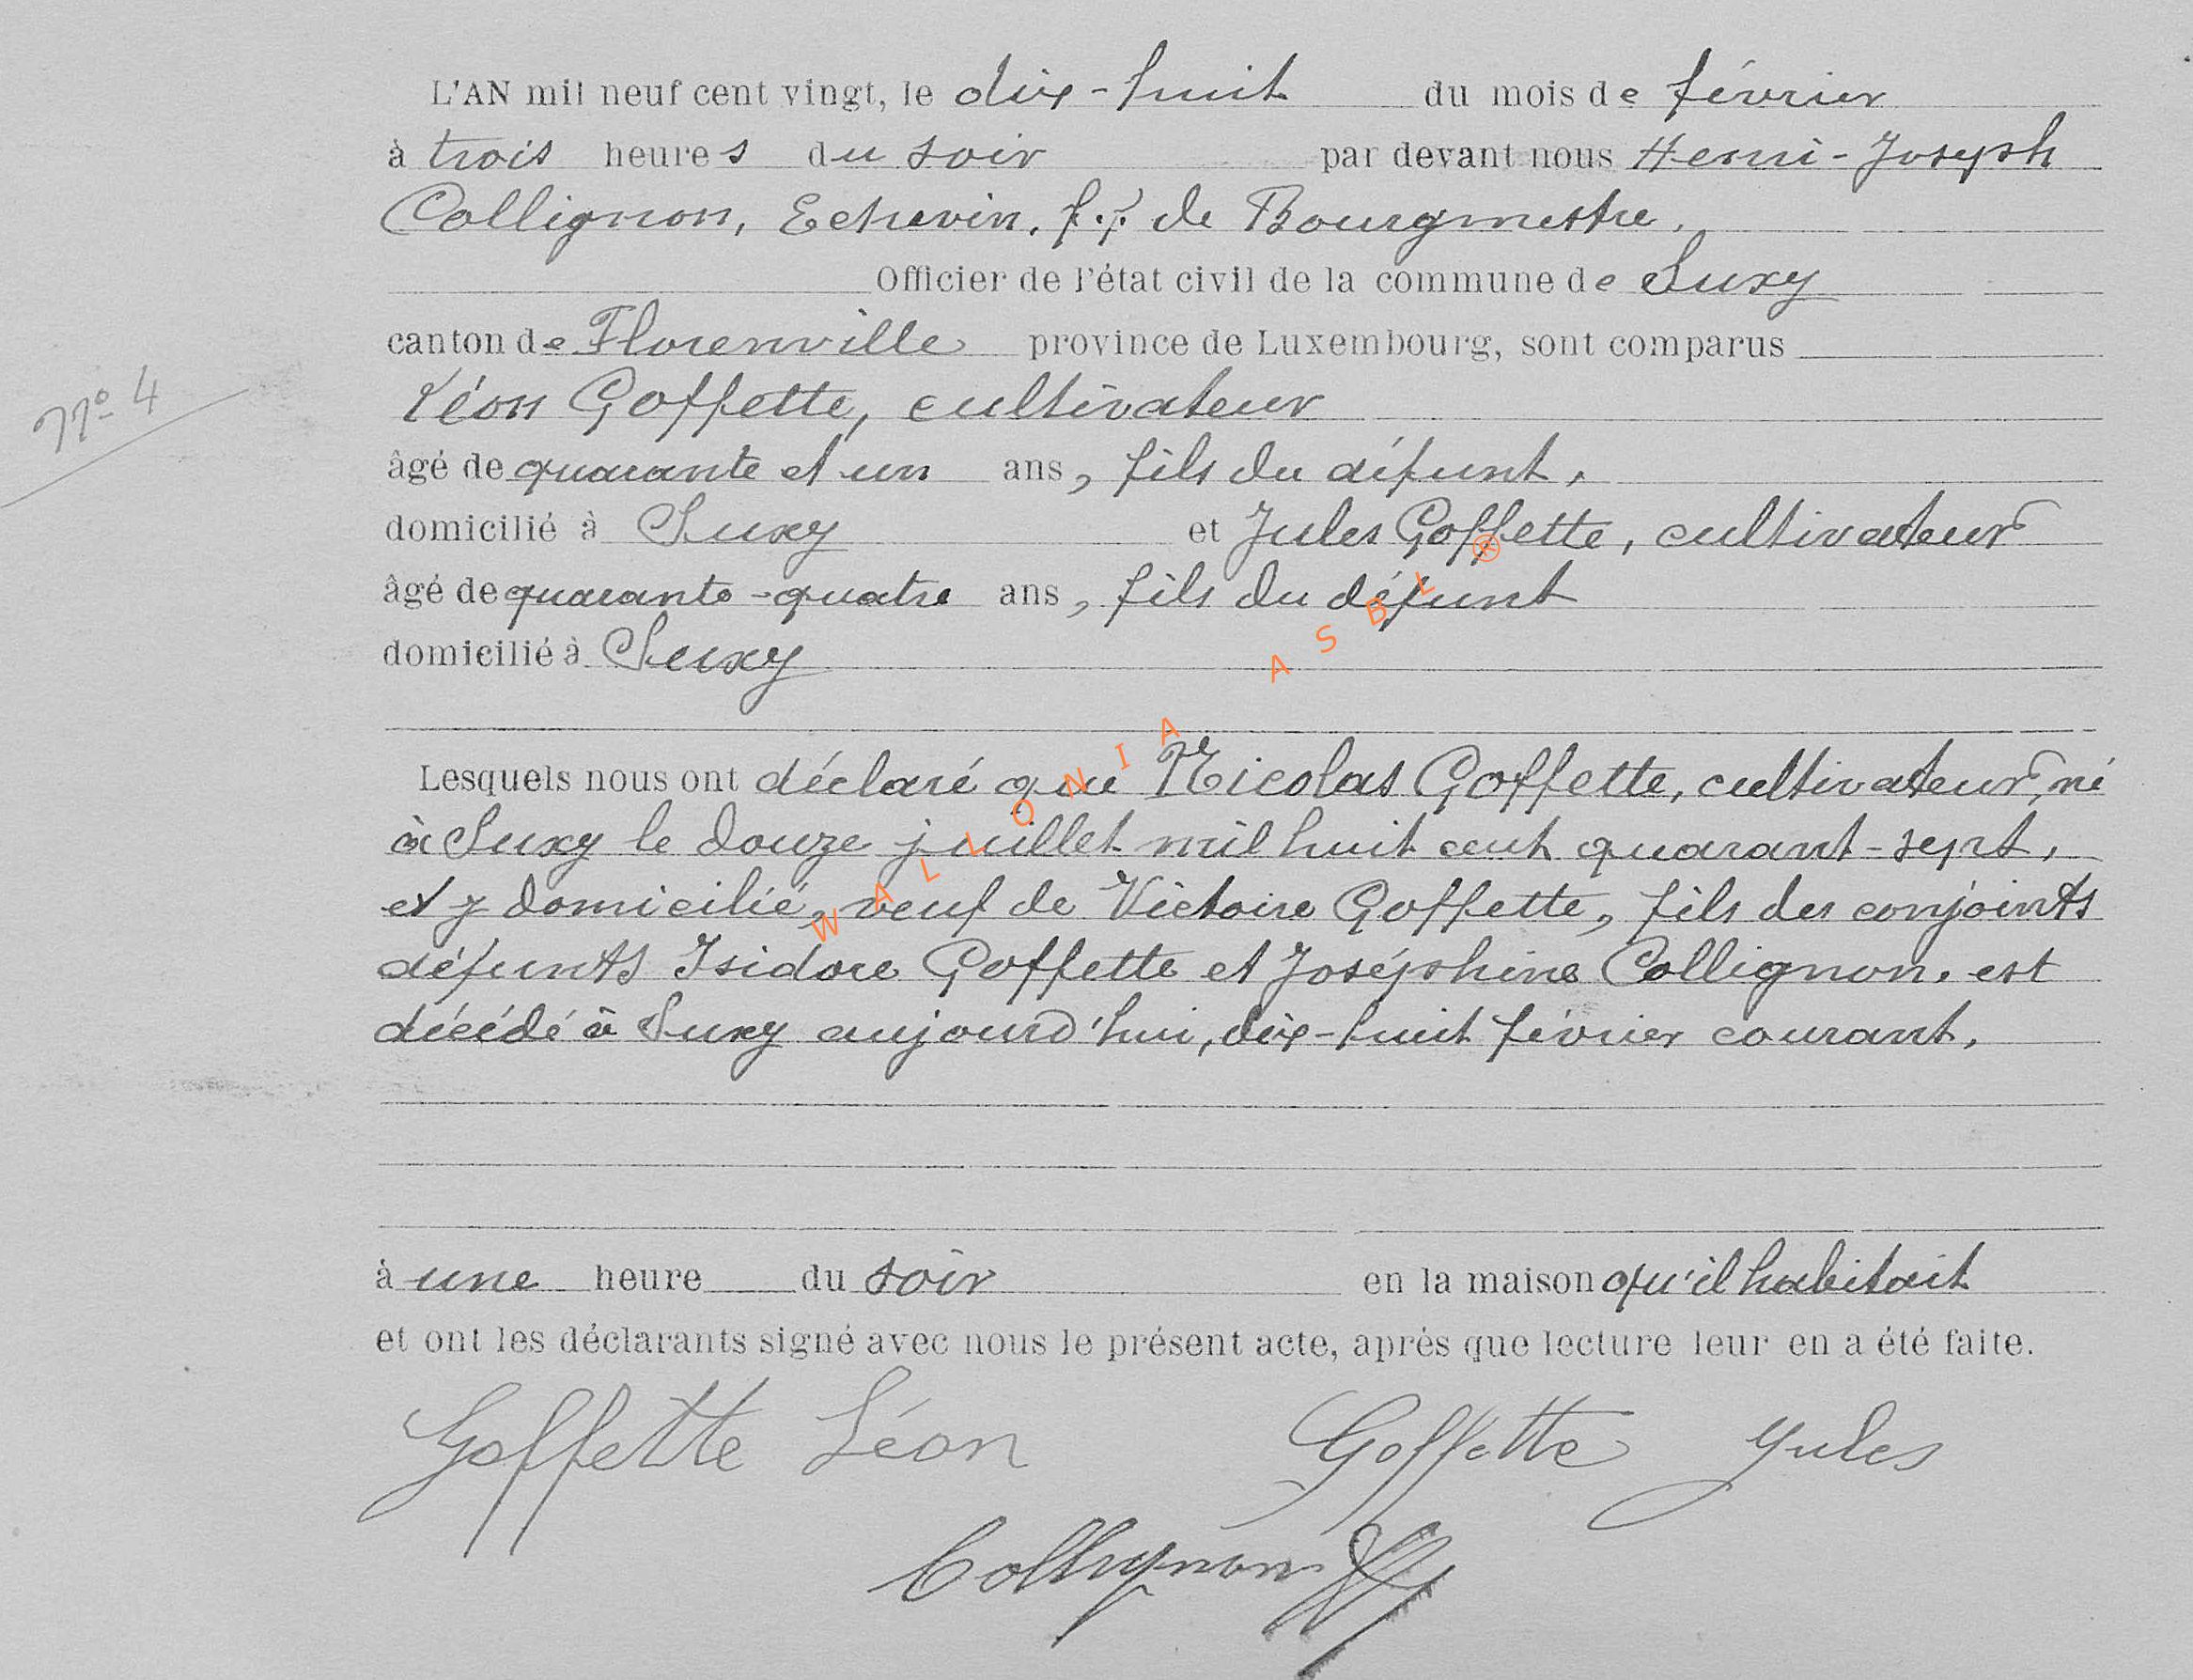 L'AN mil neuf cent vingt, le dix-huit du mois de février
à trois heures du soir par devant nous Henri-Joseph
Collignon, Echevin, f.f. de Bourgmestre,
Officier de l'état civil de la commune de Suxy
canton de Florenville province de Luxembourg, sont comparus
N° 4
Léon Goffette, cultivateur
âgé de quarante et un ans, fils du défunt,
domicilié à Suxy et Jules Goffette, cultivateur
âgé de quarante-quatre ans, fils du défunt
domicilié à Suxy
Lesquels nous ont déclaré que Nicolas Goffette, cultivateur, né
à Suxy le douze juillet mil huit cent quarant-sept,
et y domicilié, veuf de Victoire Goffette, fils des conjoints
défunts Isidore Goffette et Joséphine Collignon, est
décédé à Suxy aujourd'hui, dix-huit février courant,
à une heure du soir en la maison qu'il habitait
et ont les déclarants signé avec nous le présent acte, après que lecture leur en a été faite.
Goffette Léon Goffette Jules
Collignon
WALLONIA ASBL ®